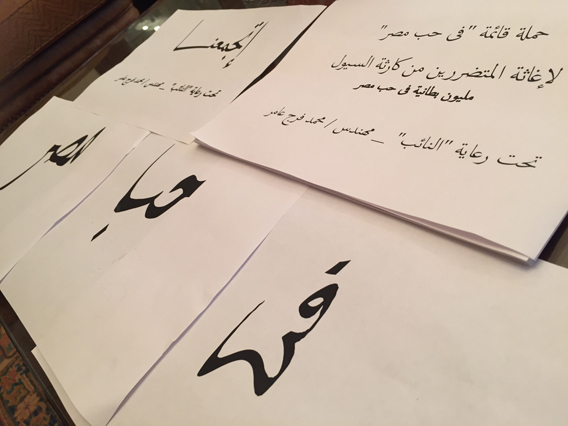 حملة قائمة "فى حب مصر"
لإغاثة المتضررين من كارثة السيول
مليون بطانية فى حب مصر
تحت رعاية "النائب" _ مهندس / محمد فرج عامر
إتجمعنا
تحت رعاية "النائب" _ مهندس / محمد فرج عامر
فى
حب
مصر